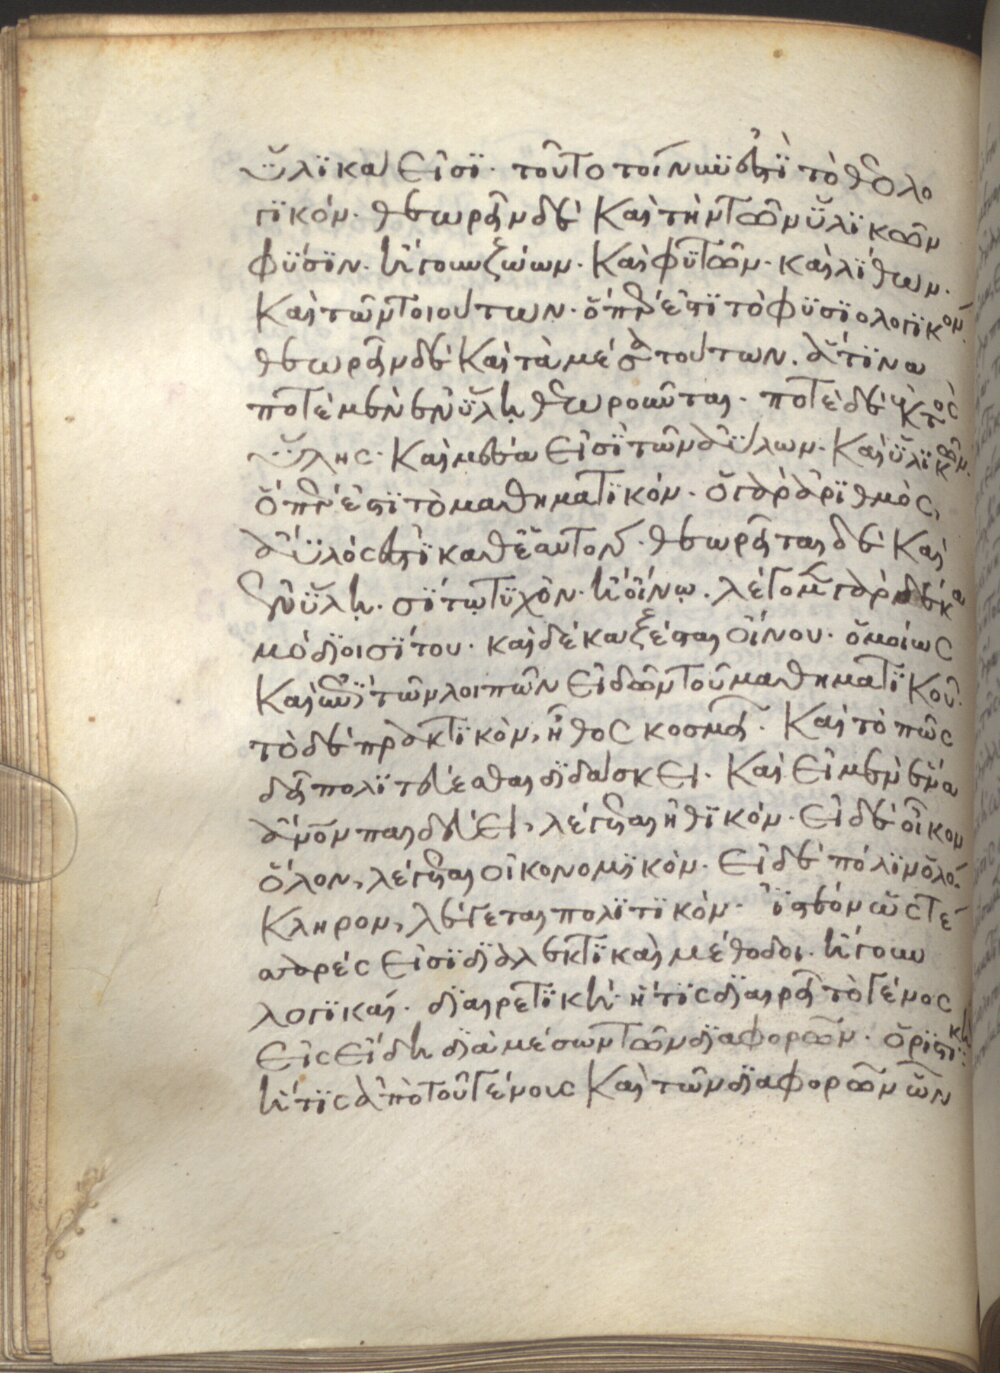 ὕλϊκα εἰσϊ· τοῦτο τοίνυν ἐστὶ τὸ θεολο
γϊκόν· θεωρεῖν δὲ καὶ τὴν τῶν ὑλϊκῶν
φύσϊν· ἤγουν ζώων· καὶ φυτῶν· καὶ λίθων·
καὶ τῶν τοιούτων· ὅπερ ἐστὶ τὸ φυσϊολογϊκόν·
θεωρεῖν δὲ καὶ τὰ μέσα τούτων. ἅτϊνα
ποτὲ μὲν ἐν ὕλῃ θεωροῦνται· ποτὲ δὲ ἐκτὸς
ὕλης· καὶ μέσα εἰσὶ τῶν ἀΰλων· καὶ ὑλϊκῶν·
ὅπερ ἐστὶ τὸ μαθηματϊκόν· ὁ γὰρ ἀρϊθμὸς,
ἄϋλός ἐστϊ καθ' ἑαυτόν· θεωρεῖται δὲ καὶ
ἐν ὕλῃ· σίτῳ τυχὸν· ἢ οἴνῳ. λέγομεν γὰρ δέκα
μόδϊοι σίτου· καὶ δέκα ξέσται οἴνου· ὁμοίως
καὶ ἐπὶ τῶν λοιπῶν εἰδῶν τοῦ μαθηματϊκοῦ·
τὸ δὲ πρακτϊκὸν, ἦθος κοσμεῖ· καὶ τὸ πῶς
δεῖ πολϊτεύεσθαι διδάσκει· καὶ εἰ μὲν ἕνα
ἄνον παιδεύει, λέγεται ἠθϊκόν· εἰ δὲ οἶκον
ὅλον, λέγεται οἰκονομϊκόν· εἰ δὲ πόλϊν ὁλό-
κληρον, λέγεται πολϊτϊκόν· ἰστέον ὡς τέσ
σαρές εἰσϊ διαλεκτϊκαὶ μέθοδοι· ἤγουν
λογϊκαί· δϊαιρετϊκὴ· ἥτϊς δϊαιρεῖ τὸ γένος
εἰς εἴδη δϊὰ μέσων τῶν δϊαφορῶν· ὁρϊστϊκὴ·
ἥτϊς ἀπὸ τοῦ γένους καὶ τῶν δϊαφορῶν ὧν